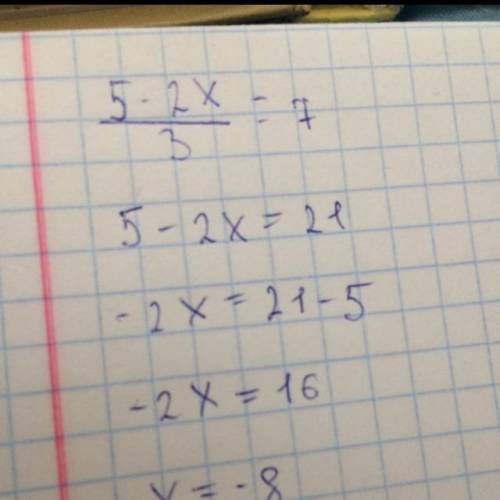 5 - 2x / 3 = 7
5 - 2x = 21
-2x = 21 - 5
-2x = 16
x = -8